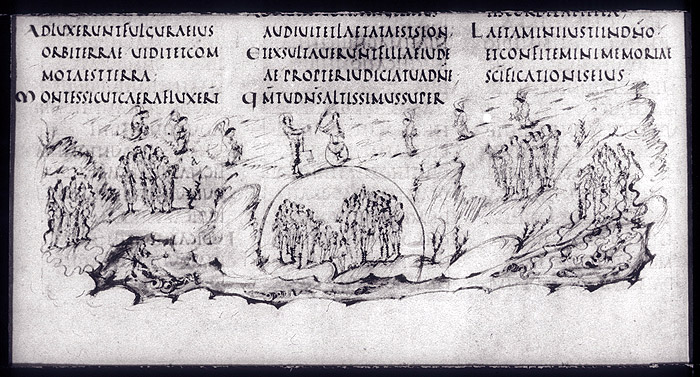 ADLUXERUNTFULGURAEIUS
ORBITERRAE UIDITETCOM
MOTAESTTERRA;
MONTESSICUTCAERAFLUXERT̅
AUDIUITETLAETATAESTSION;
ETEXSULTAUERUNTFILIAEIUDE
AE PROPTERIUDICIATUADN̅E
QM̅TUDN̅SALTISSIMUSSUPER
LAETAMINIIUSTIINDN̅O;
ETCONFITEMINIMEMORIAE
SCIFICATIONISEIUS